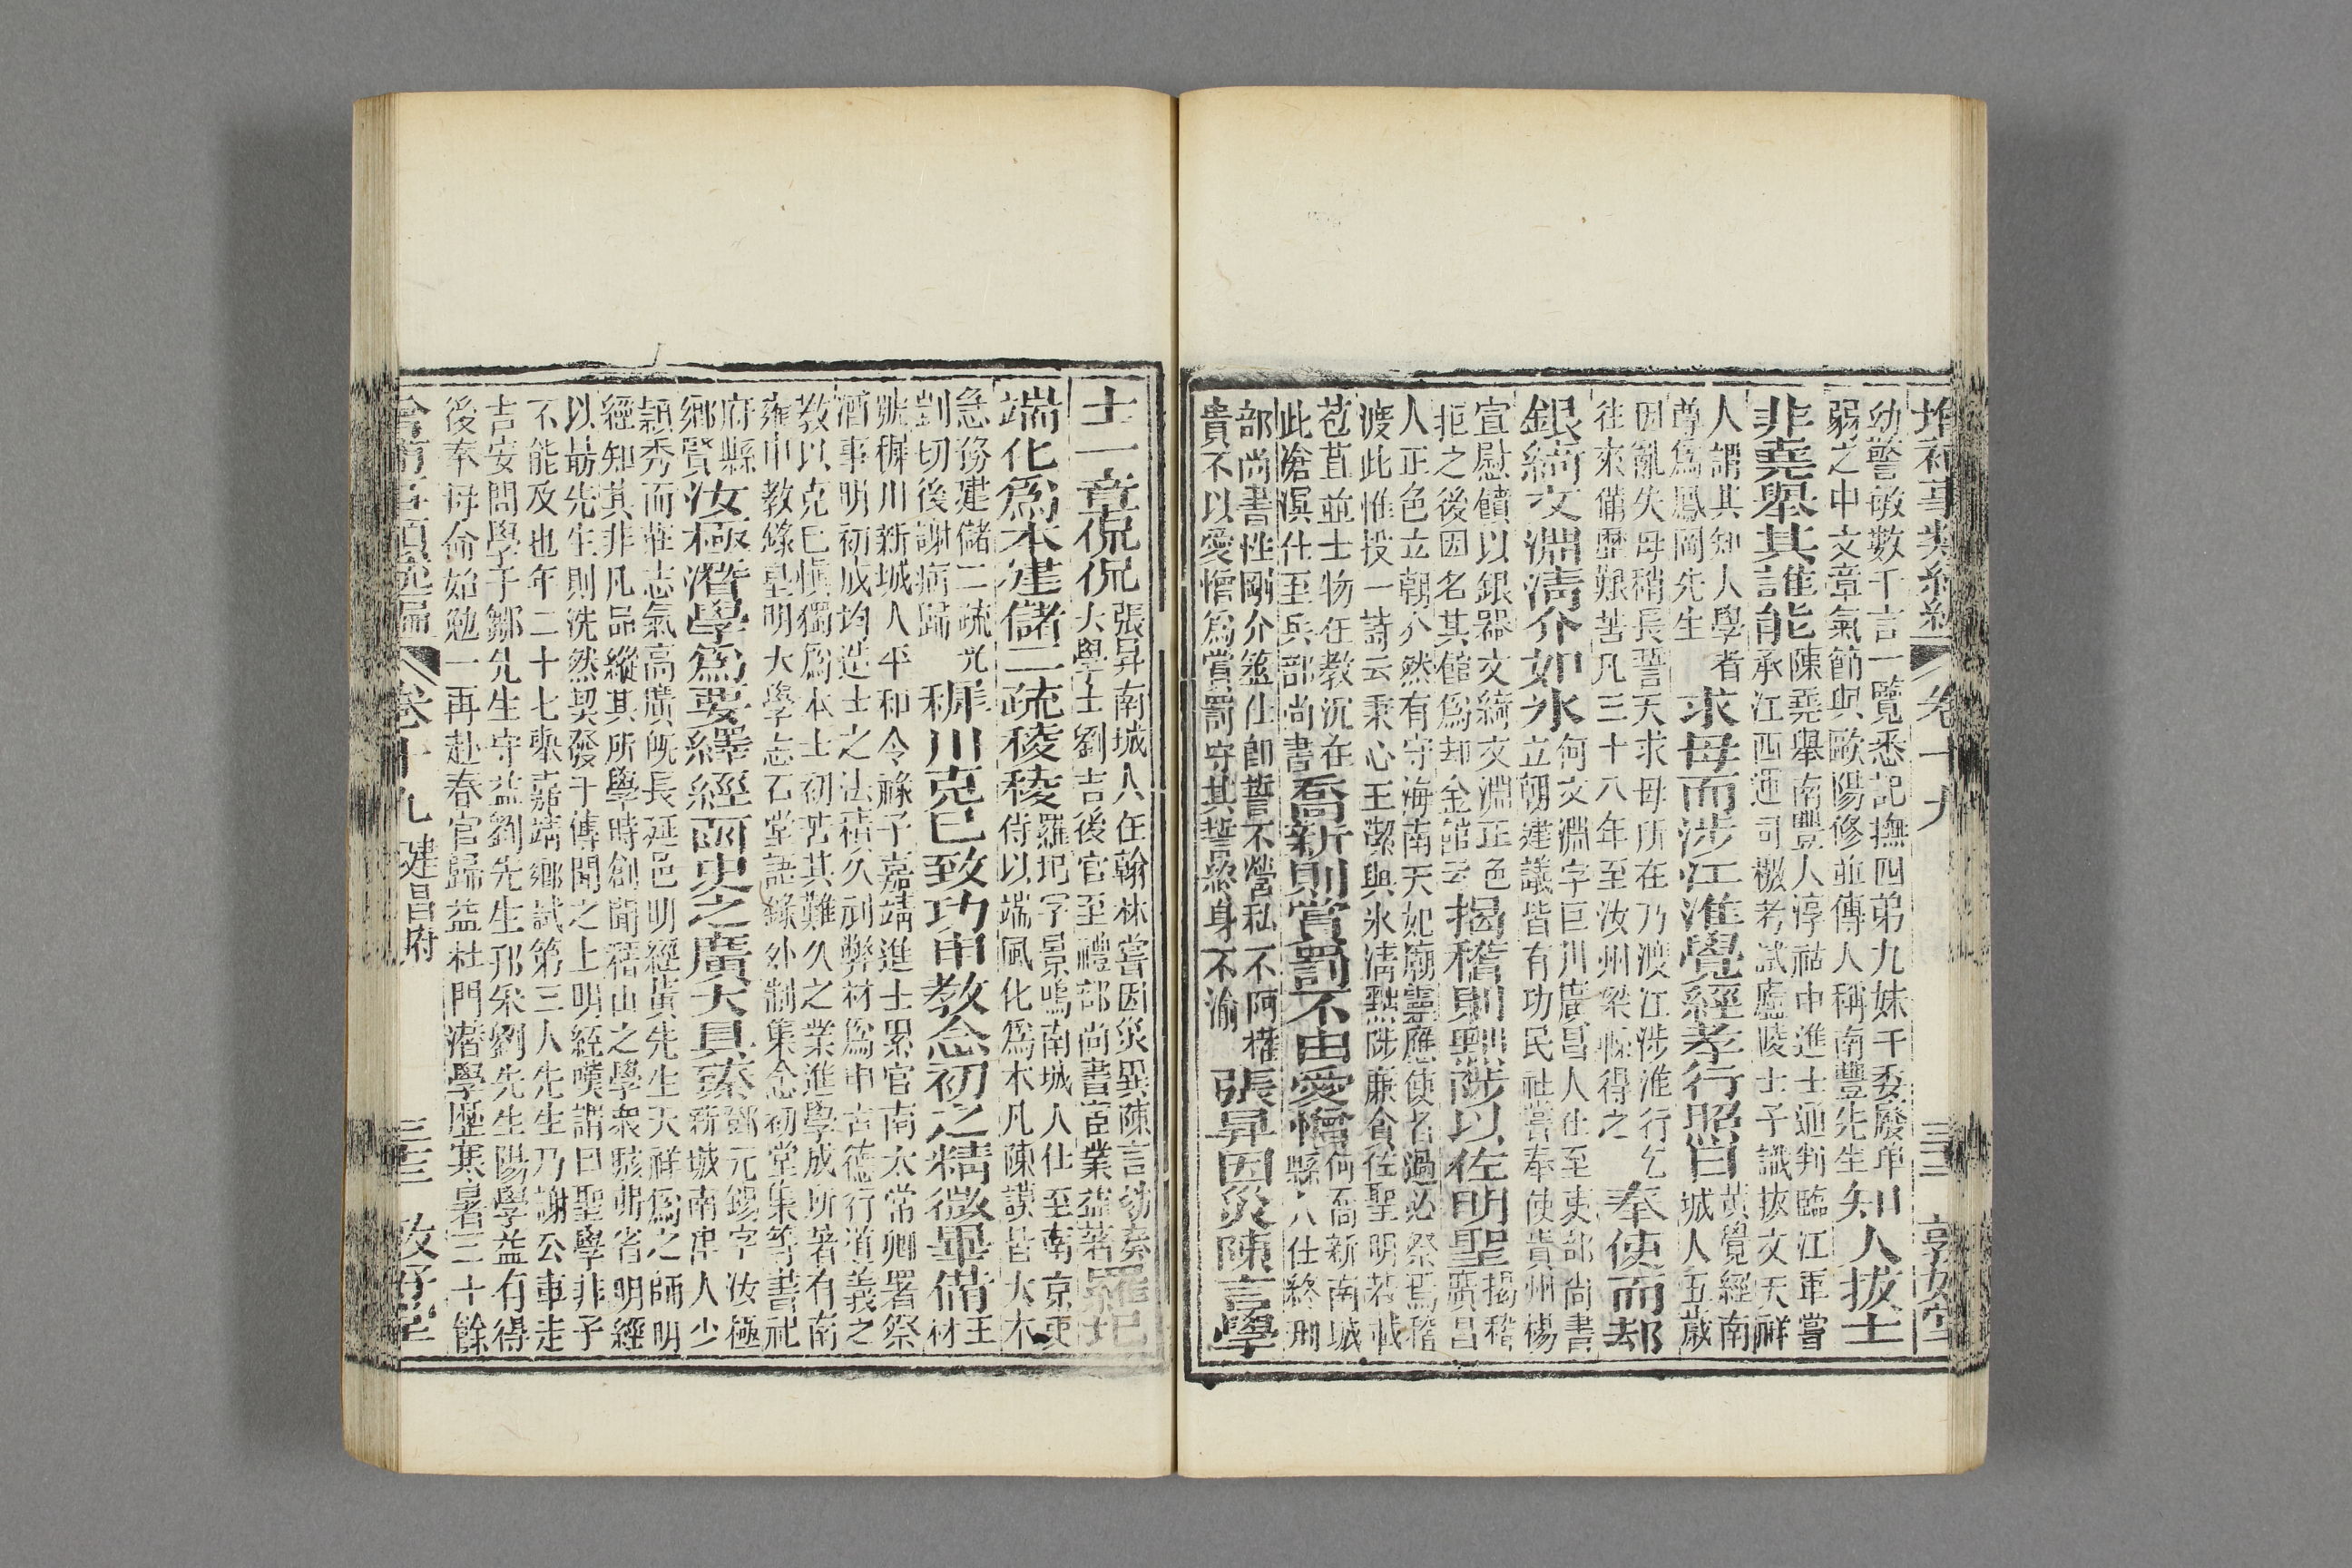 卷十九
幼警敏數千言一覽悉記撫四弟九妹千委廢單
弱之中文章氣節與歐陽修並傳人稱南豐先生
知人拔士
非堯舉其誰能
陳堯舉南豐人淳祐中進士通判臨江軍嘗
承江西運司檄考試廬陵士子識拔文天祥
人謂其知人學者
尊爲鳳岡先生
求母而涉江淮覺經孝行照白
黃覺經南
城人五歲
因亂失母稍長誓天求母所在乃渡江涉淮行乞
往來備歷艱苦凡三十八年至汝州梁縣得之
奉使而却
銀綺文淵淸介如氷
何文淵字巨川廣昌人仕至吏部尚書
立朝建議皆有功民社嘗奉使貴州楊
宣慰饋以銀器文綺文淵正色
拒之後因名其館爲却金館云
揭稽則黜陟以佐明聖
揭稽
廣昌
人正色立朝介然有守海南天妃廟靈應使者過必祭焉稽
渡此惟投一詩云秉心玉潔與氷淸黜陟廉貪佐聖明若載
苞苴並土物在教沉在
此滄溟仕至兵部尚書
喬新則賞罰不由愛憎
何喬新南城
縣人仕終刑
部尚書性剛介筮仕卽誓不營私不阿權
貴不以愛憎爲賞罰守其誓終身不渝
張昇因災陳言學
士一章侃侃
張昇南城人任翰林嘗因災異陳言劾奏
大學士劉吉後官至禮部尚書宦業益著
羅玘
端化爲本建儲二疏稜稜
羅玘字景鳴南城人仕至南京吏
侍以端風化爲本凡陳謨皆大本
急務建儲二疏尤
剴切後謝病歸
稺川克己致功申敎念初之精微畢備
王
材
號稺川新城人平和令祿子嘉靖進士累官南太常卿署祭
酒事明初成均造士之法積久刓弊材爲申古德行道義之
敎以克己愼獨爲本士初苦其難久之業進學成所著有南
雍申教錄皇明大學志石堂語錄外制集念初堂集等書祀
府縣
鄉賢
汝極濳學爲要繹經函史之廣大具臻
鄧元錫字汝極
新城南津人少
穎秀而莊志氣高廣旣長延邑明經黃先生天祥爲之師明
經知其非凡品縱其所學時創聞稽山之學衆駭弗省明經
以最先生則洗然契發于傳聞之上明經嘆謂曰聖學非子
不能及也年二十七舉嘉靖鄉試第三人先生乃謝公車走
吉安問學于鄒先生守益劉先生邦采劉先生陽學益有得
後奉母命始勉一再赴春官歸益杜門濳學歷寒暑三十餘
卷十九 建昌府